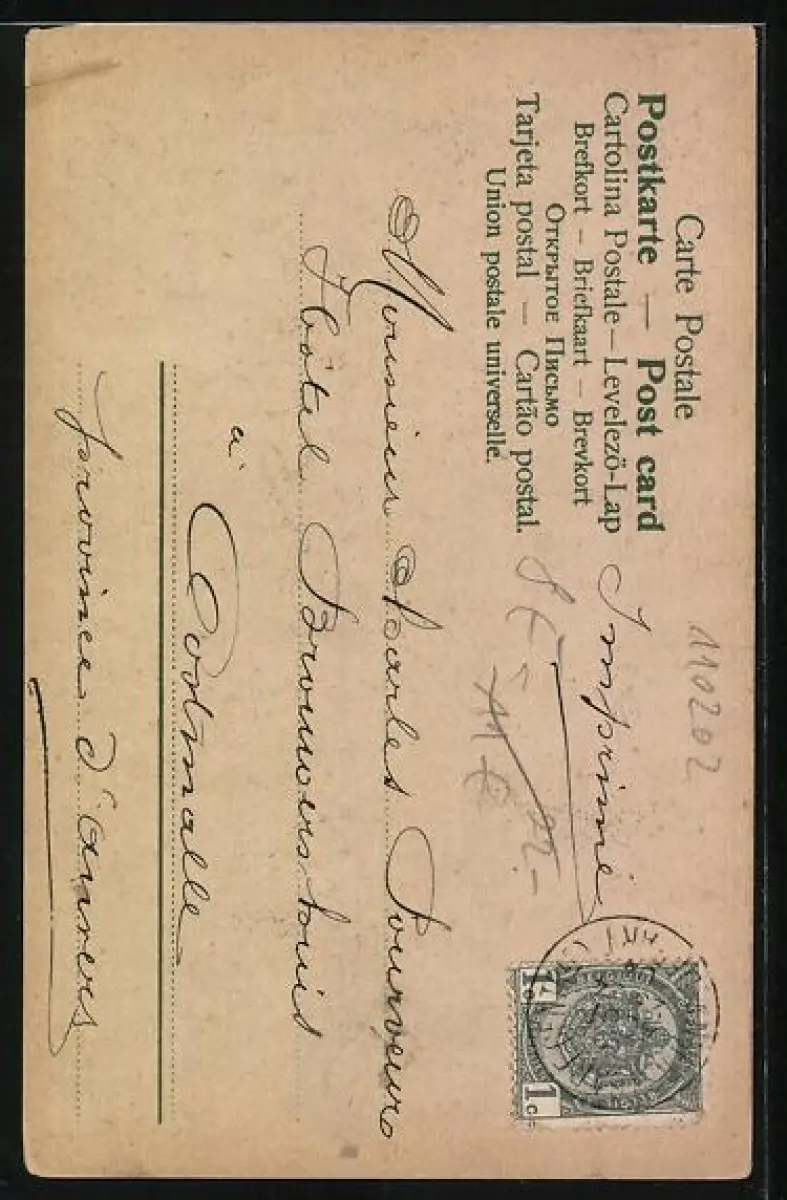 Carte Postale
Postkarte — Post card
Cartolina Postale – Levelező-Lap
Brefkort – Briefkaart – Brevkort
Открытое Письмо
Tarjeta postal — Cartão postal.
Union postale universelle.
110202
Imprimé
Monsieur Charles
Hôtel Brouwershuis
à Oostmalle
province d'Anvers
1c 1c